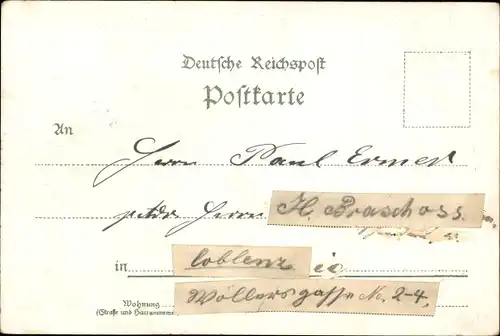 Deutsche Reichspost
Postkarte
An
Herrn Paul Ermes
Herrn H. Braschoss.
in Coblenz
Wöllersgasse No. 2-4.
Wohnung
(Straße und Hausnummer)